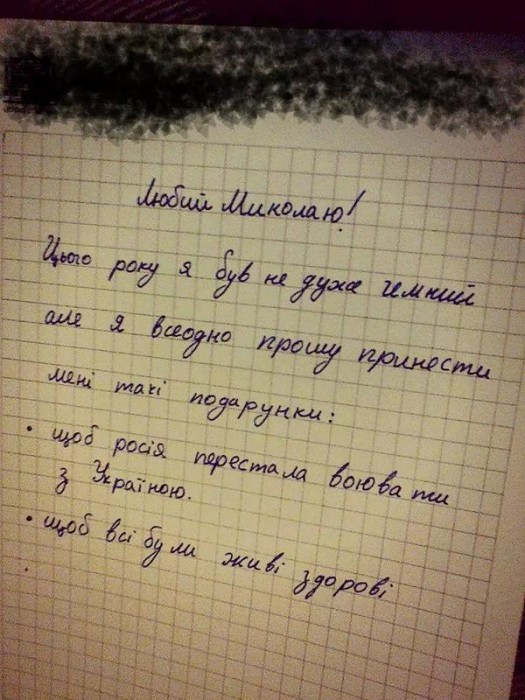 Любий Миколаю!
Цього року я був не дуже чемний
але я всеодно прошу принести
мені такі подарунки:
• щоб росія перестала воювати
з Україною.
• щоб всі були живі здорові
•